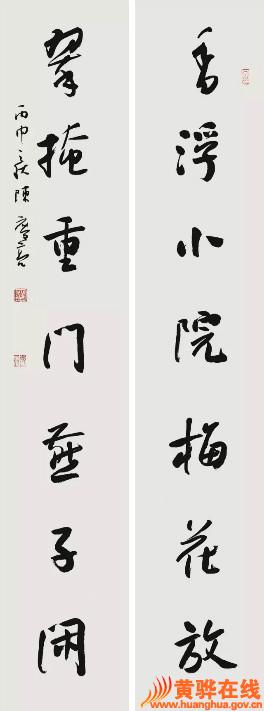 香浮小院梅花放
翠掩重门燕子闲
丙申之秋陳
黄骅在线
www.huanghua.gov.cn